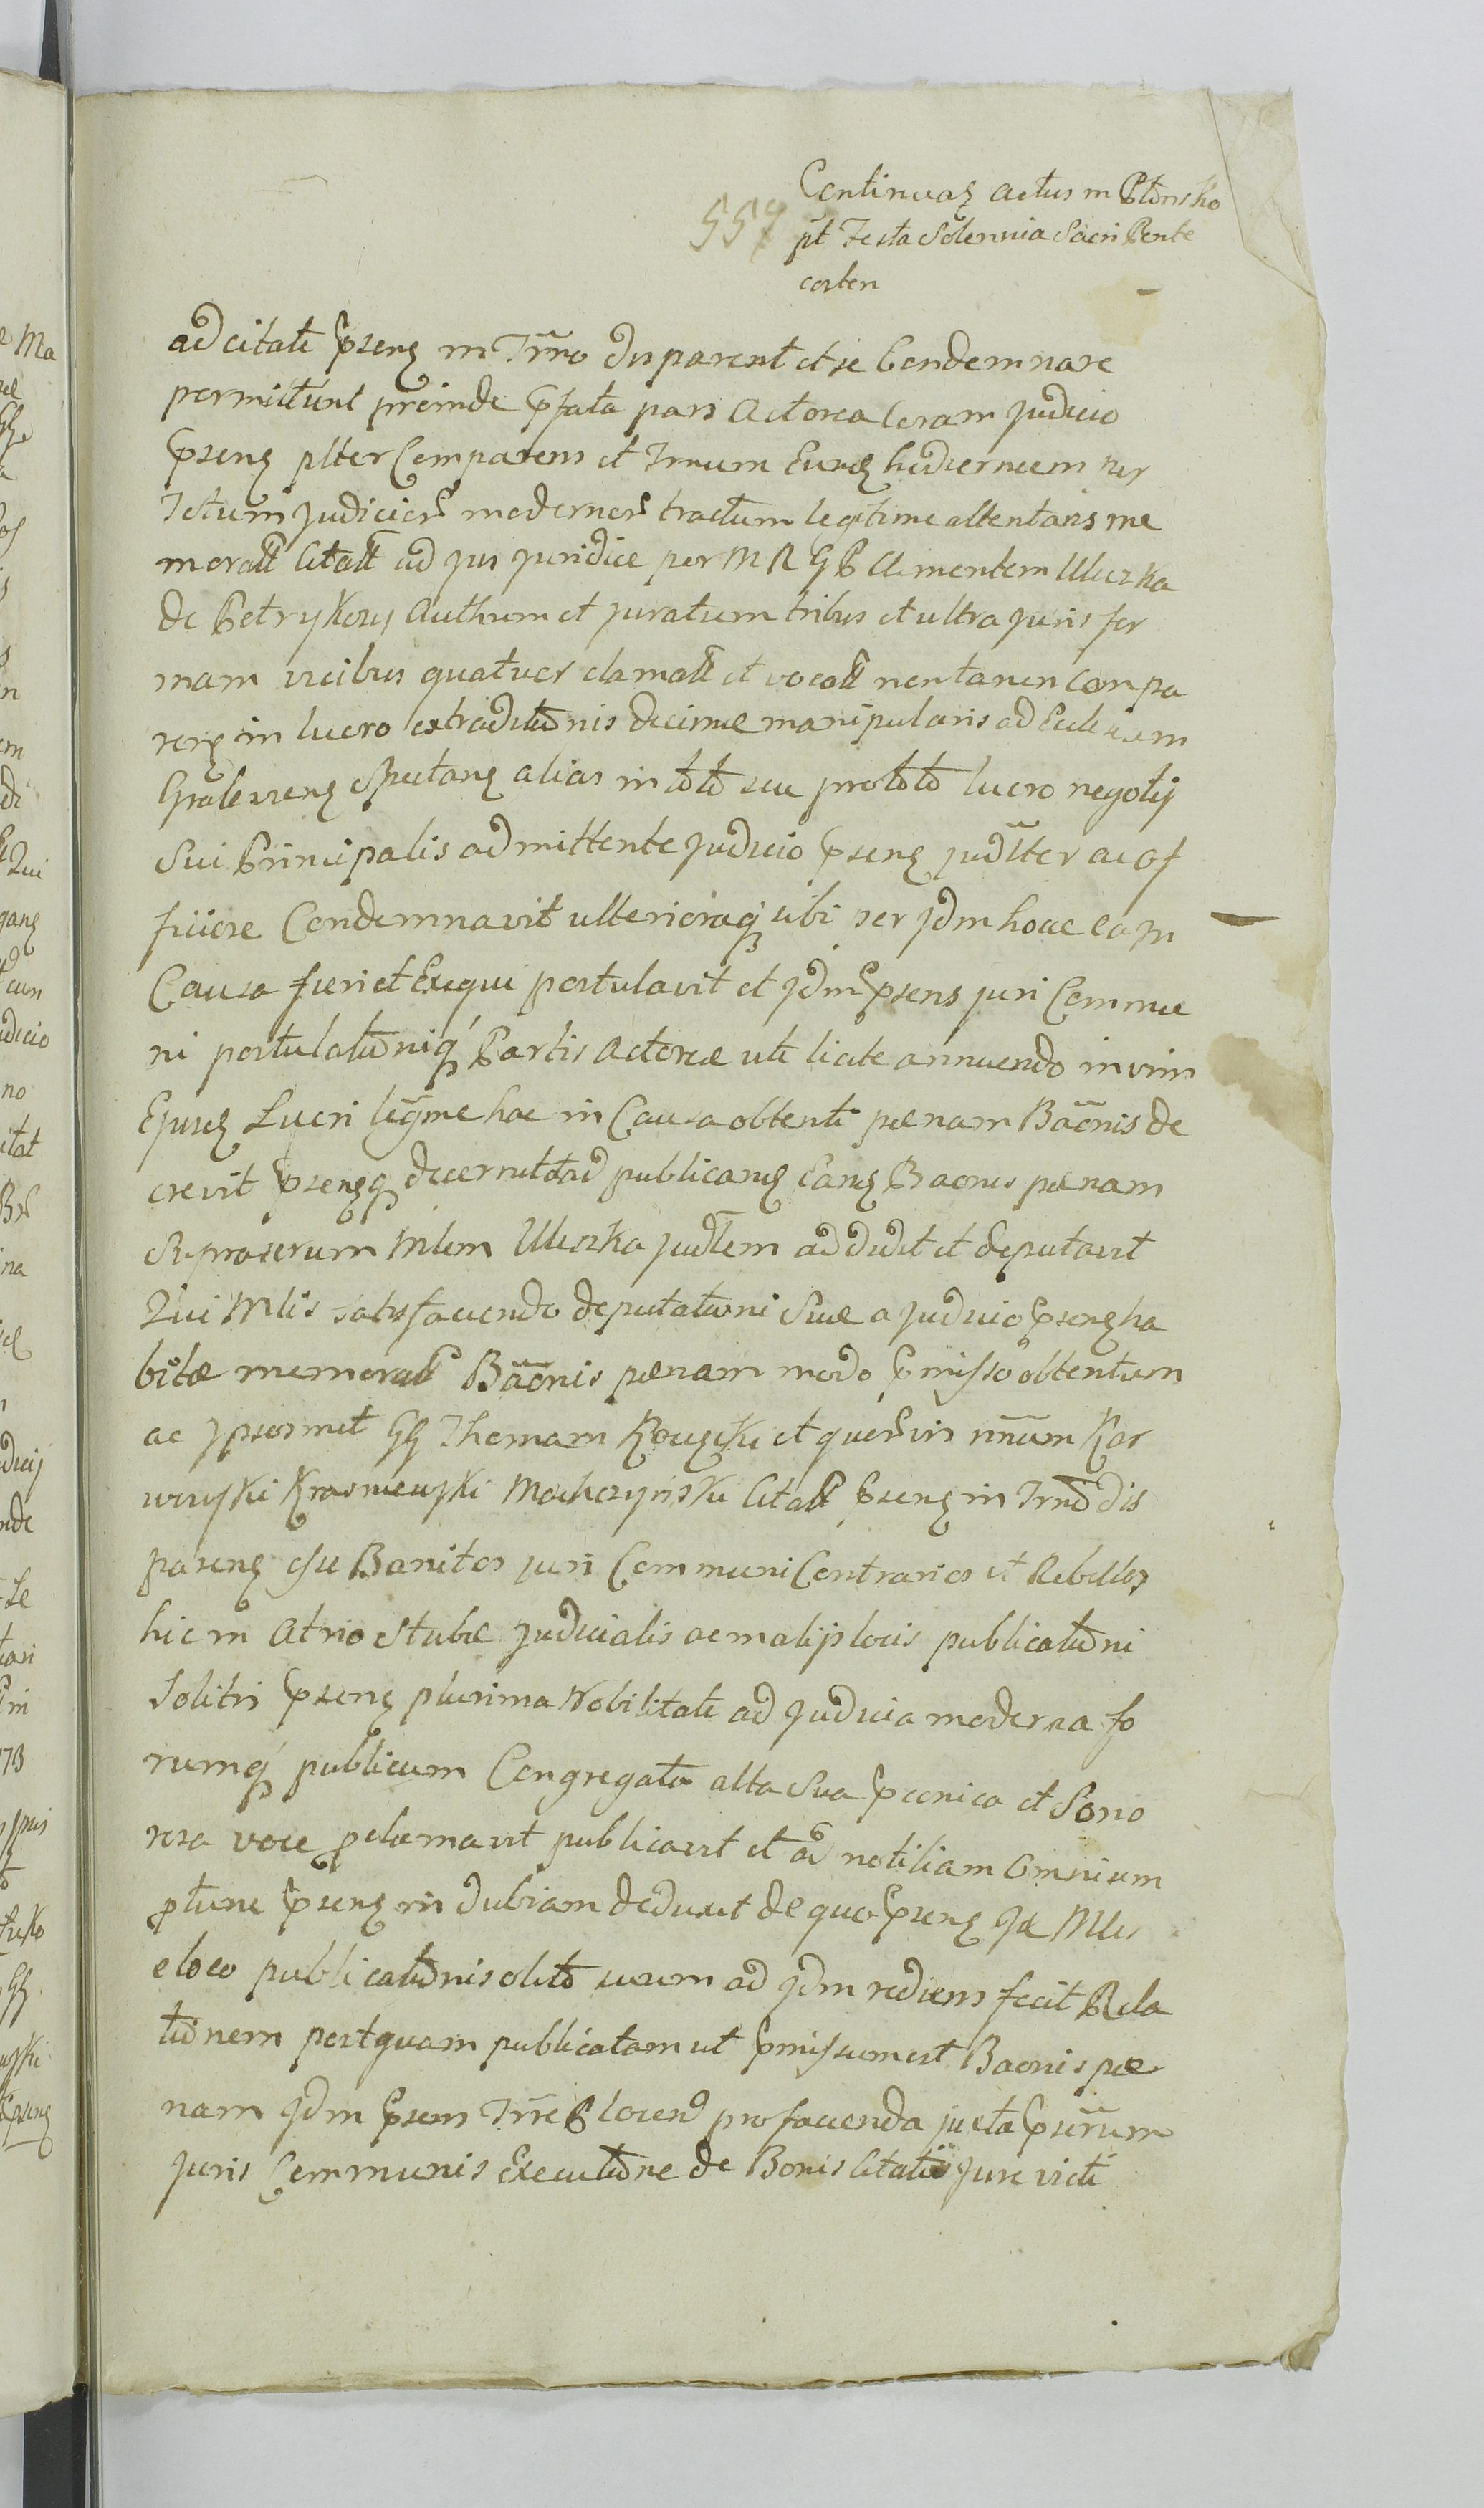 Continuaç actus in Płonsko
557 pt Festa Solennia Sacri Pente
costen
ad citatt Ppsenç in Trno disparent et se Condemnare
permittunt proinde Ppfata pars Actorea Coram Judicio
Ppsenç plter Comparens et Trnum Eundç hodiernum per
Totum Judicior modernor tractum legitime attentans me
moratt Citatt ad jus juridice per M R G P Clementem Uleszka
de Petrykozy Authum et juratum tribus et ultra juris for
mam vicibus quatuor clamatt et vocatt non tamen compa
renç in lucro extraditnis decimæ manipularis ad Ecclesiam
Gralevienç Spectanç alias in toto seu pro toto lucro negotij
Sui Principalis admittente Judicio Ppsenç judlter ac of
fiiose Condemnavit ulterioraq sibi per Jdm hocce ea in
Causa fieri et Exequi postulavit et Jdm Ppsens juri Commu
ni postulatniq Partis Actoreæ uti licite annuendo in vim
Ejusdç Lucri legme hac in Causa obtenti pænam Banis de
crevit Ppsençq decernit ad publicanç Eanç Banis pænam
Suprascrum Mlem Uleszka Judlem addidit et deputavit
Qui Mlis satisfaciendo deputationi Suæ a Judicio Ppsenç ha
bitæ memorat Banis pænam modo Ppmisso obtentam
ac ipsosmet GG Thomam et quervis
Citatt Ppsenç in Trno dis
parenç esse Banitos juri Communi Contrarios et Rebelles
hic in Atrio Stubæ judicialis ac in alijs locis publicatni
Solitis Ppsenç plurima Nobilitate ad Judicia moderna fo
rumq publicum Congregata alta Sua Ppconica et Sono
rosa voce pclamavit publicavit et ad notitiam Omnium
ptunc Ppsenç in dubiam deduxit de quo Ppsenç Jdç Mlis
e loco publicatnis olito suum ad Jdm rediens fecit Rela
tionem postquam publicatam ut Ppmissum est Banis pæ
nam Jdm Ppsens Trre P locend pro facienda juxta Ppscrum
juris Communis Executione de Bonis Citatti jure victi